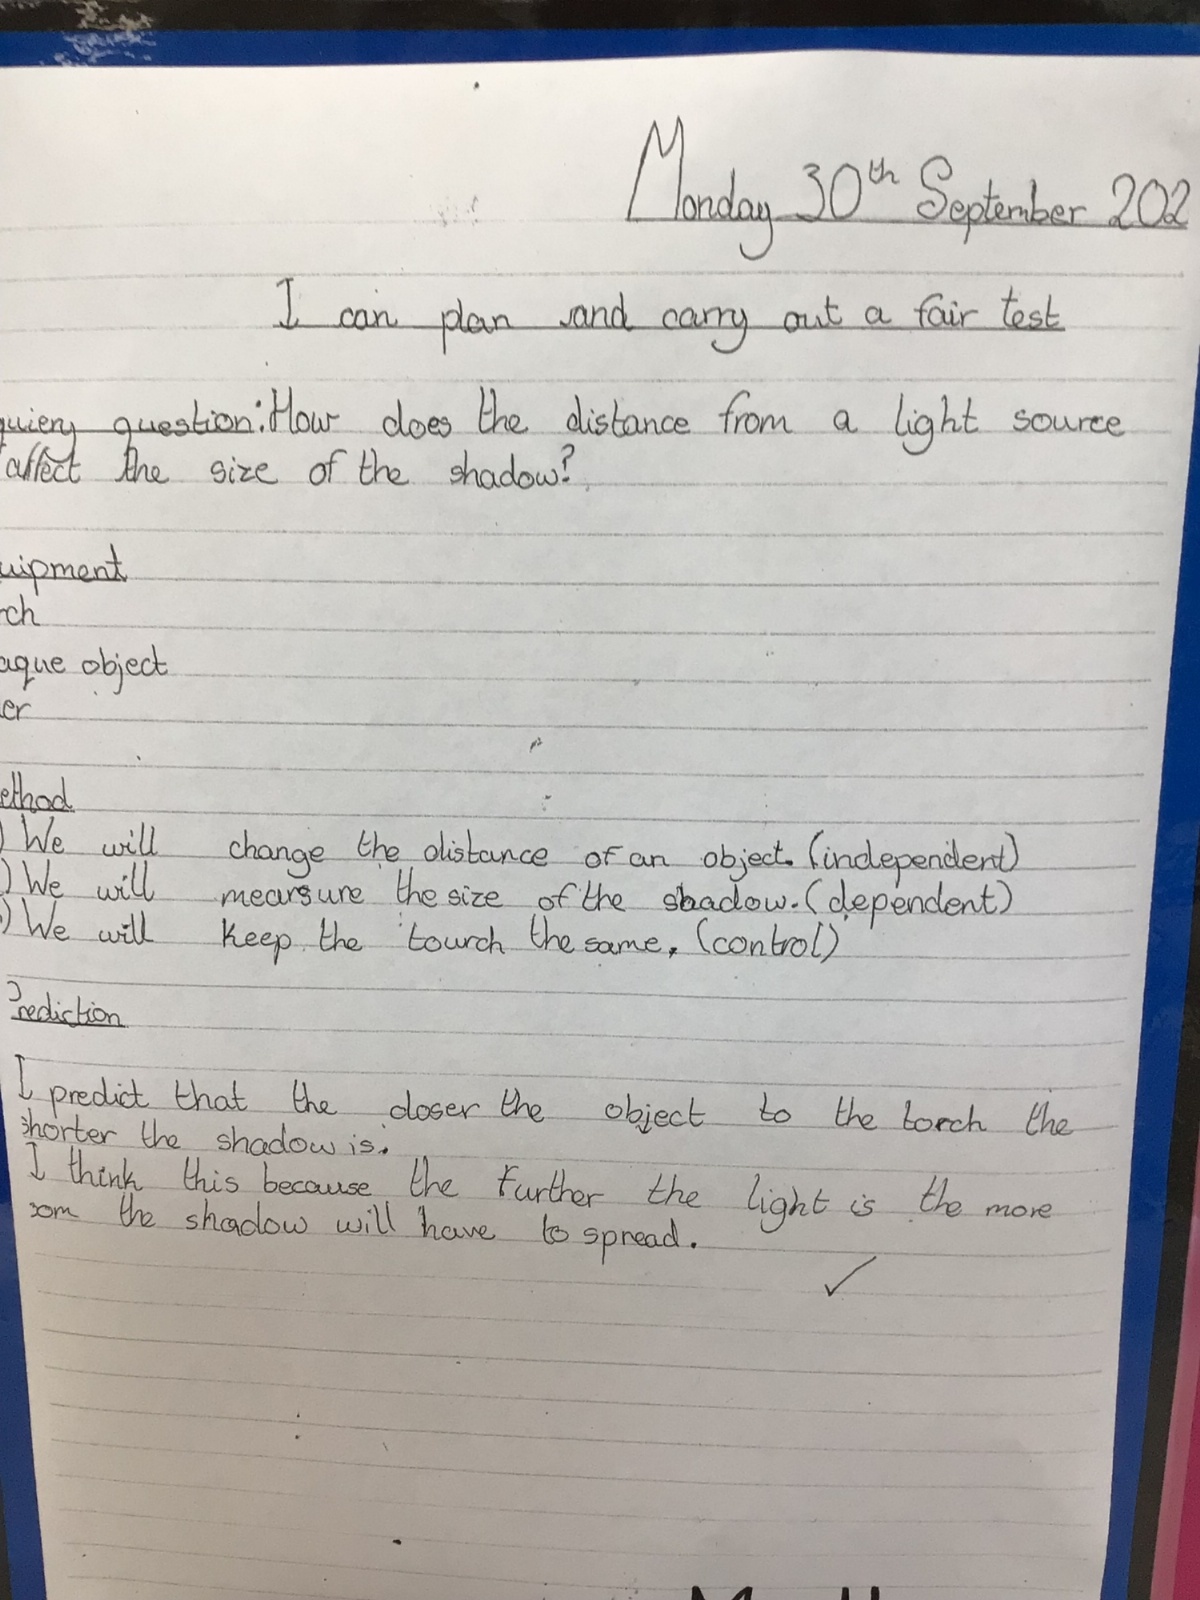 Monday 30th September 202
I can plan and carry out a fair test
quiery question: How does the distance from a light source
affect the size of the shadow?
uipment
rch
aque object
er
ethod
) We will change the distance of an object. (independent)
) We will mearsure the size of the shadow. (dependent)
) We will keep the tourch the same. (control)
Prediction
I predict that the closer the object to the torch the
shorter the shadow is.
I think this because the further the light is the more
oom the shadow will have to spread.